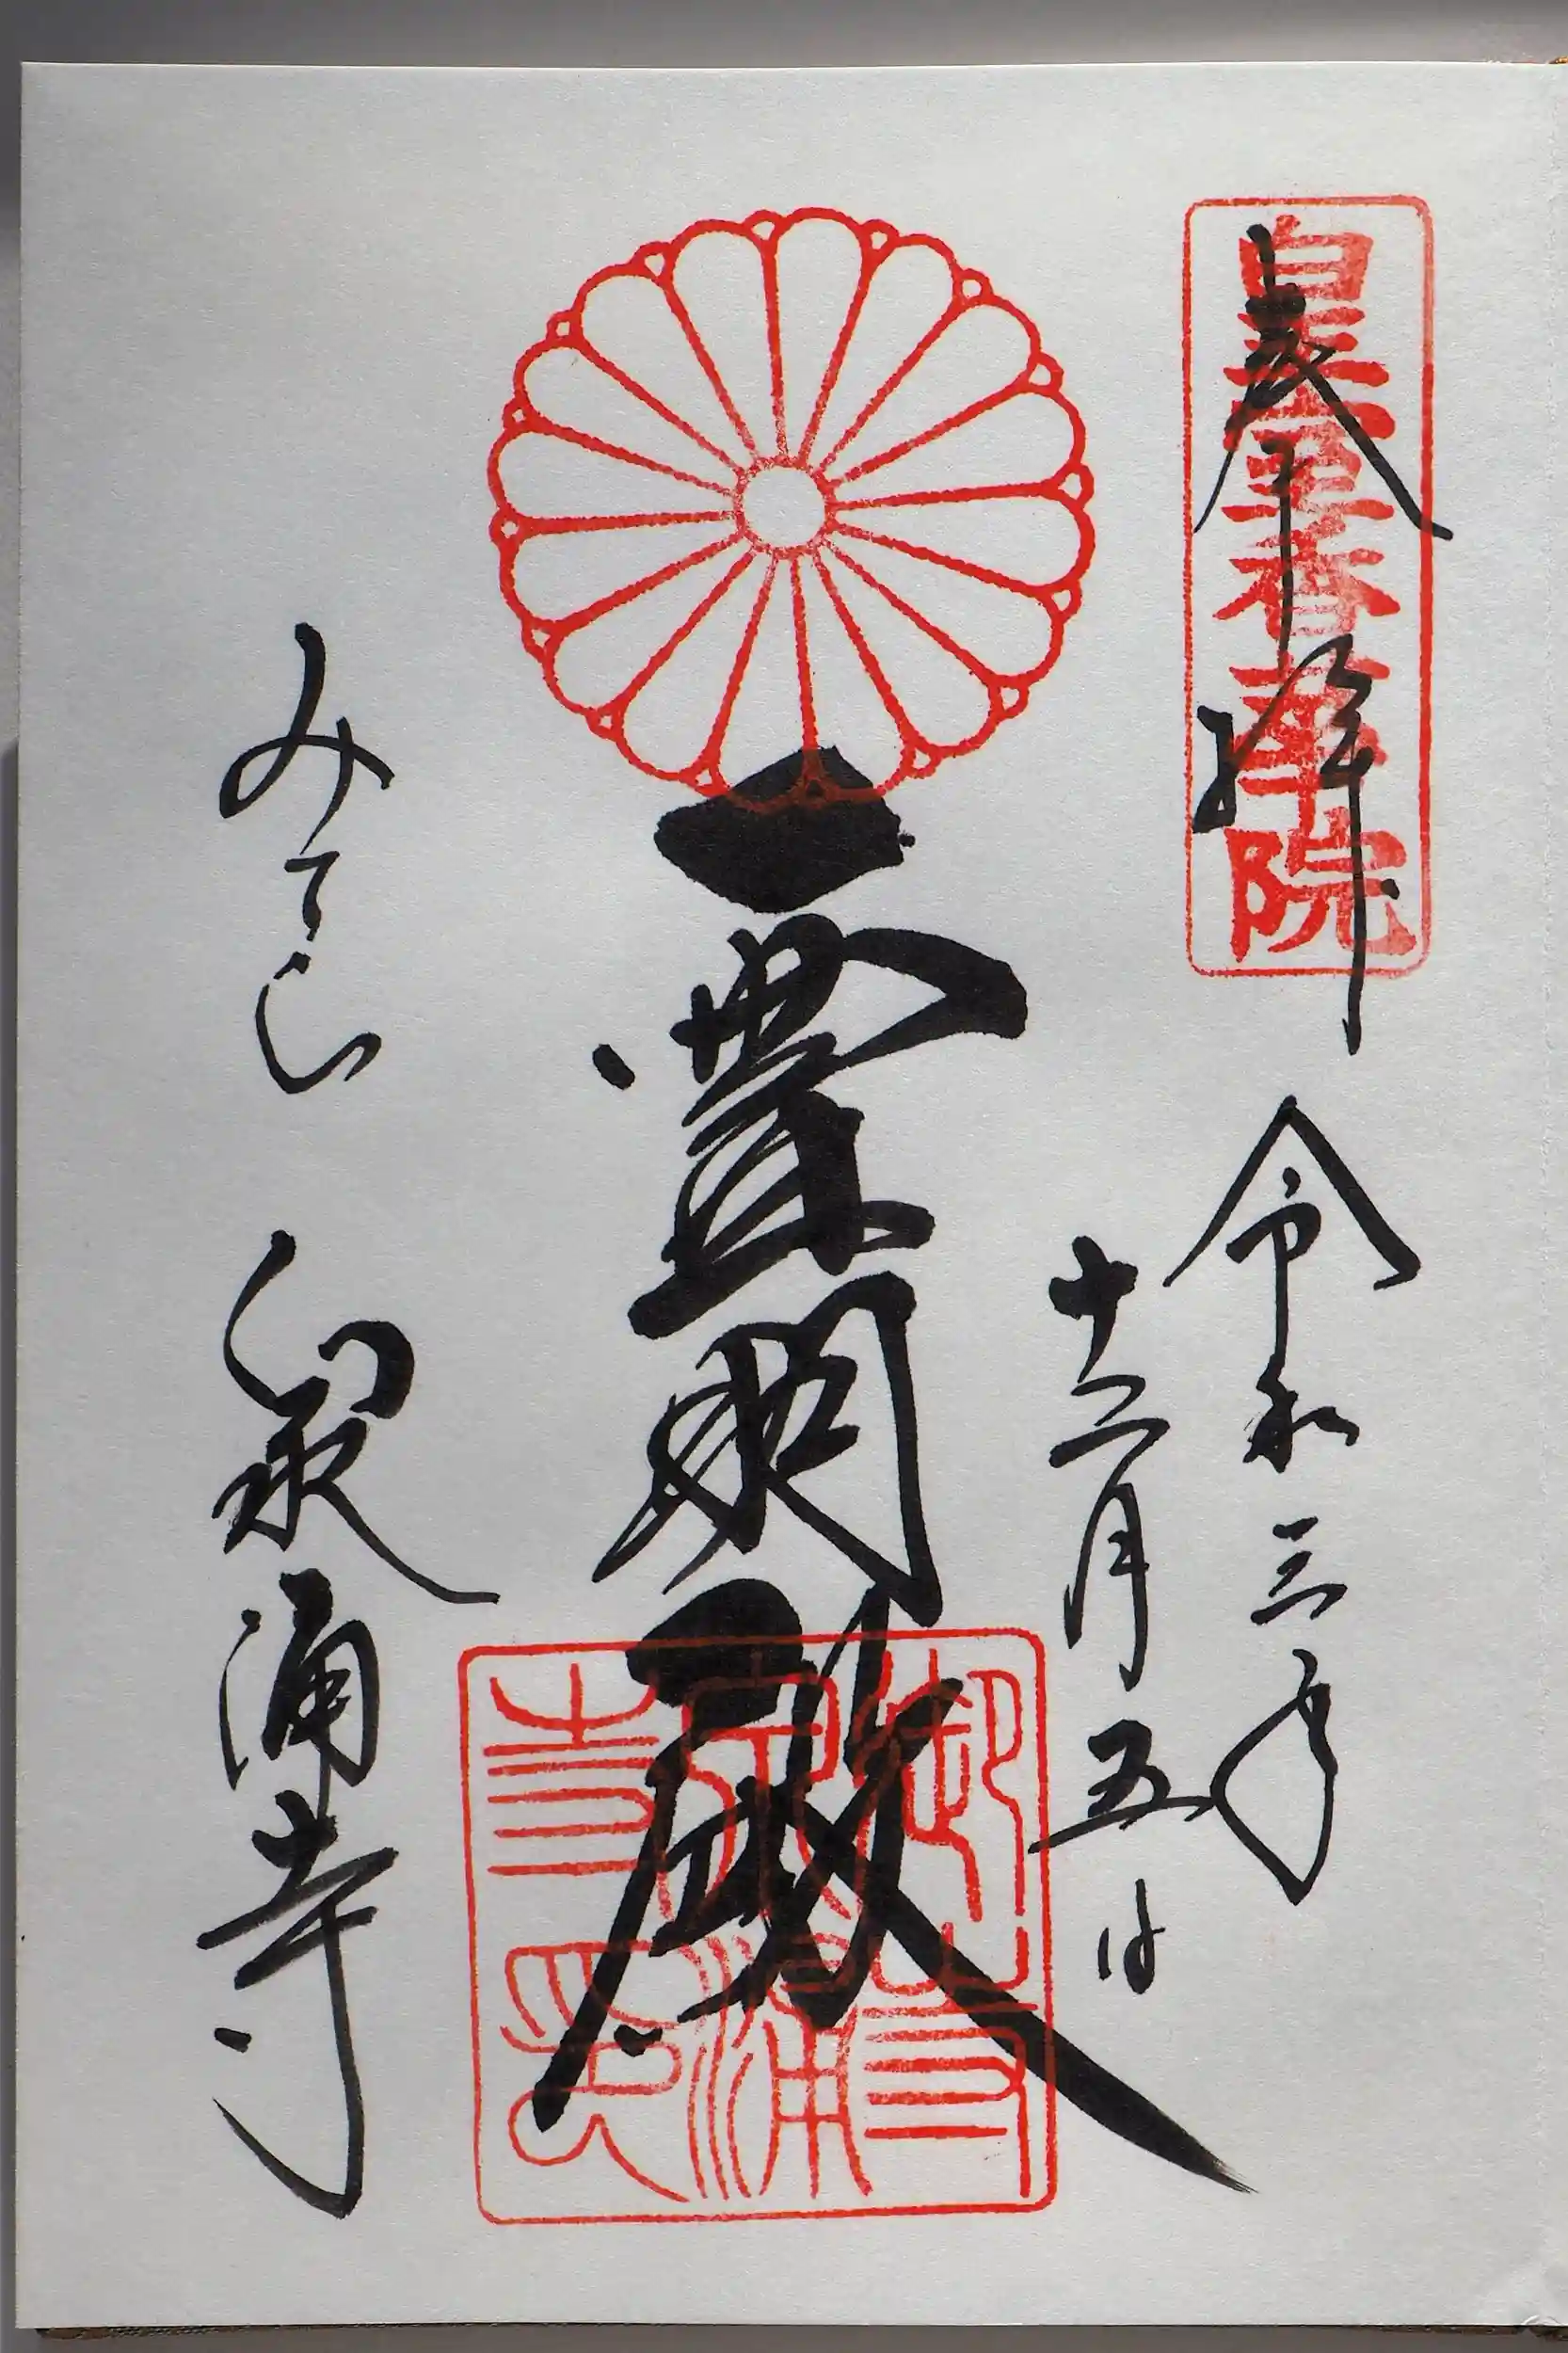 奉拝
皇室香華院
令和三年
十二月五日
霊明殿
御寺泉涌寺印
みてら 泉涌寺